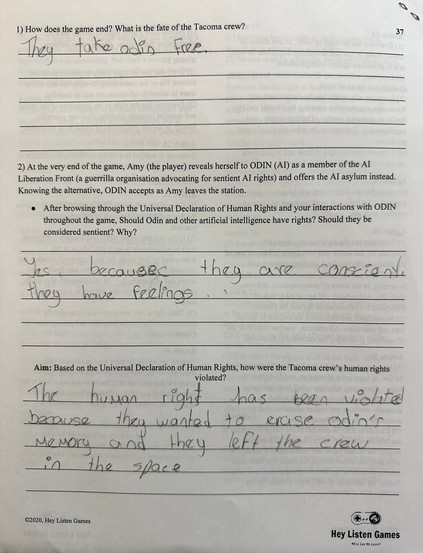 1) How does the game end? What is the fate of the Tacoma crew?
37
They take odin Free.
2) At the very end of the game, Amy (the player) reveals herself to ODIN (AI) as a member of the AI
Liberation Front (a guerrilla organisation advocating for sentient AI rights) and offers the AI asylum instead.
Knowing the alternative, ODIN accepts as Amy leaves the station.
• After browsing through the Universal Declaration of Human Rights and your interactions with ODIN
throughout the game, Should Odin and other artificial intelligence have rights? Should they be
considered sentient? Why?
Yes. becausec they are conscient.
they have feelings.
Aim: Based on the Universal Declaration of Human Rights, how were the Tacoma crew's human rights
violated?
The human right has been violited
because they wanted to erase odin's
memory and they left the crew
in the space
©2020, Hey Listen Games
Hey Listen Games